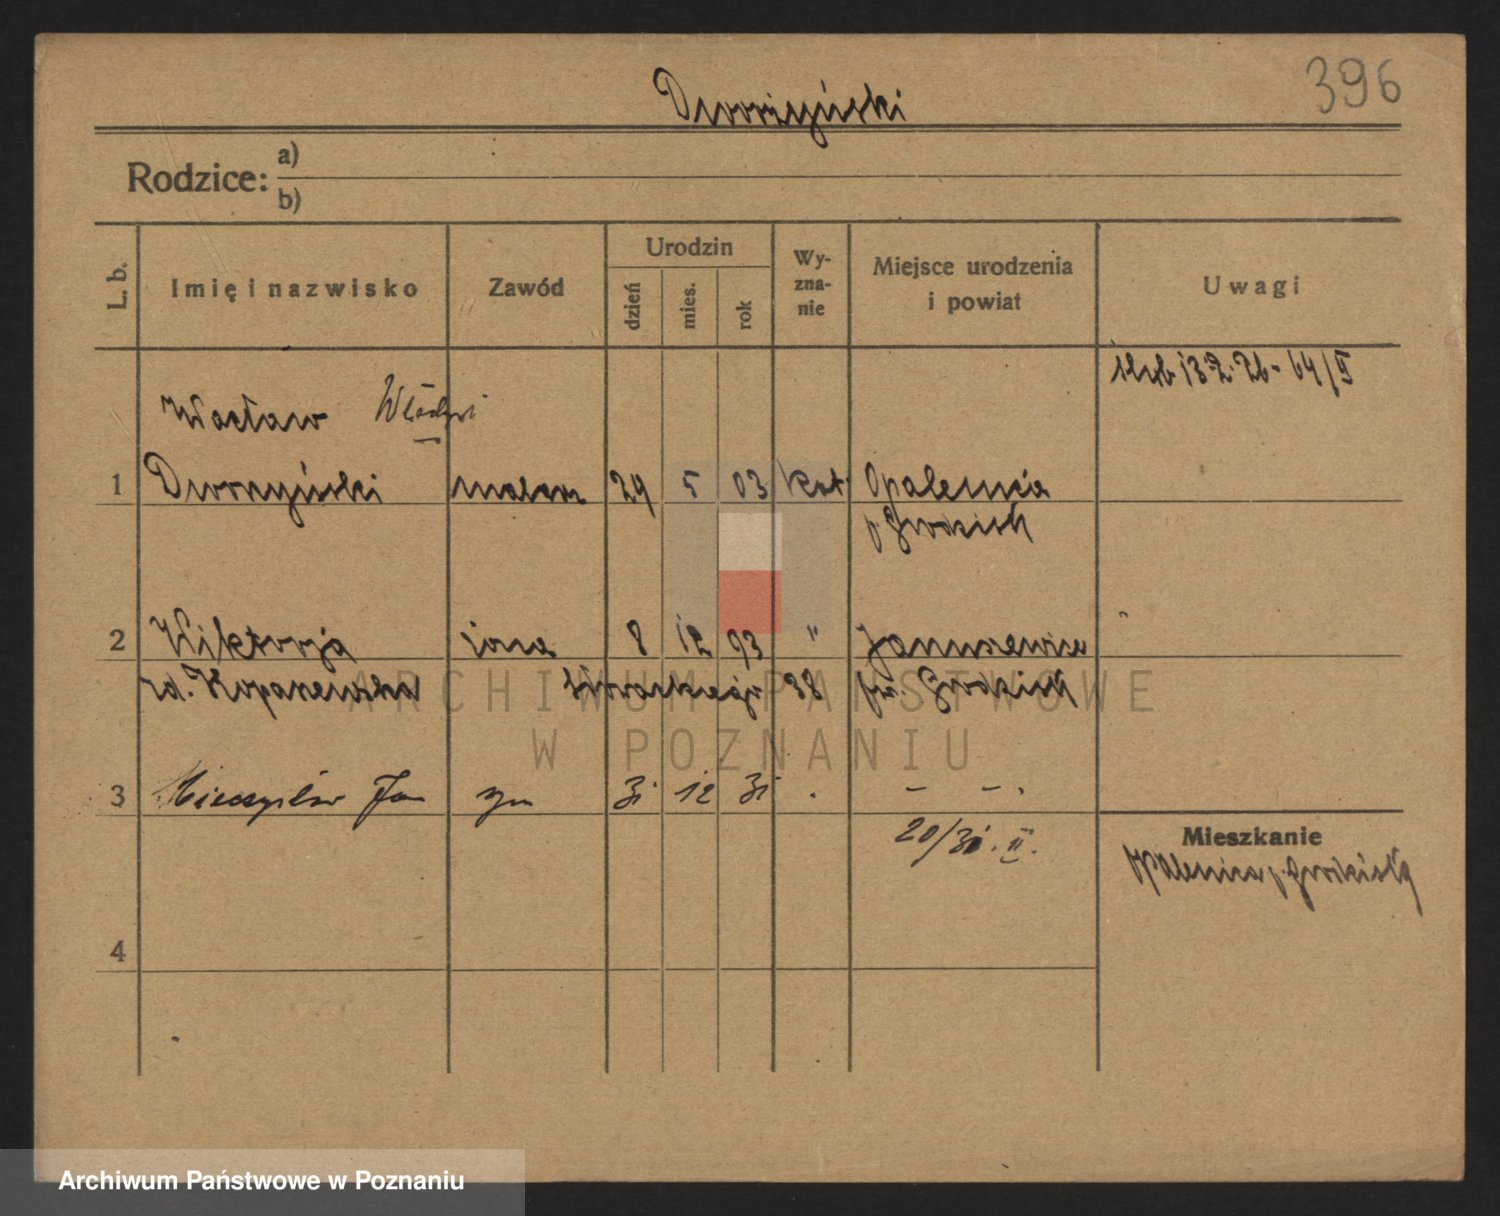 Dworzyński
396
Rodzice:
a)
b)
L. b.
Imię i nazwisko
Zawód
Urodzin
dzień
mies.
rok
Wy-
zna-
nie
Miejsce urodzenia
i powiat
Uwagi
Wacław
1 Dworzyński 29 5 03 kat. Opalenica
p. Grodzisk
2 Wiktorja żona 8 12 93 " Januszewice
38 pow. Grodzisk
3 Mieczysław Jan syn 31 12 31 . - - .
20/31. II.
Mieszkanie
Opalenica p. Grodzisk
4
ARCHIWUM PAŃSTWOWE
W POZNANIU
Archiwum Państwowe w Poznaniu